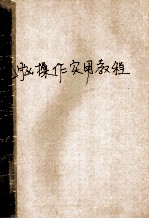 操作实用教程